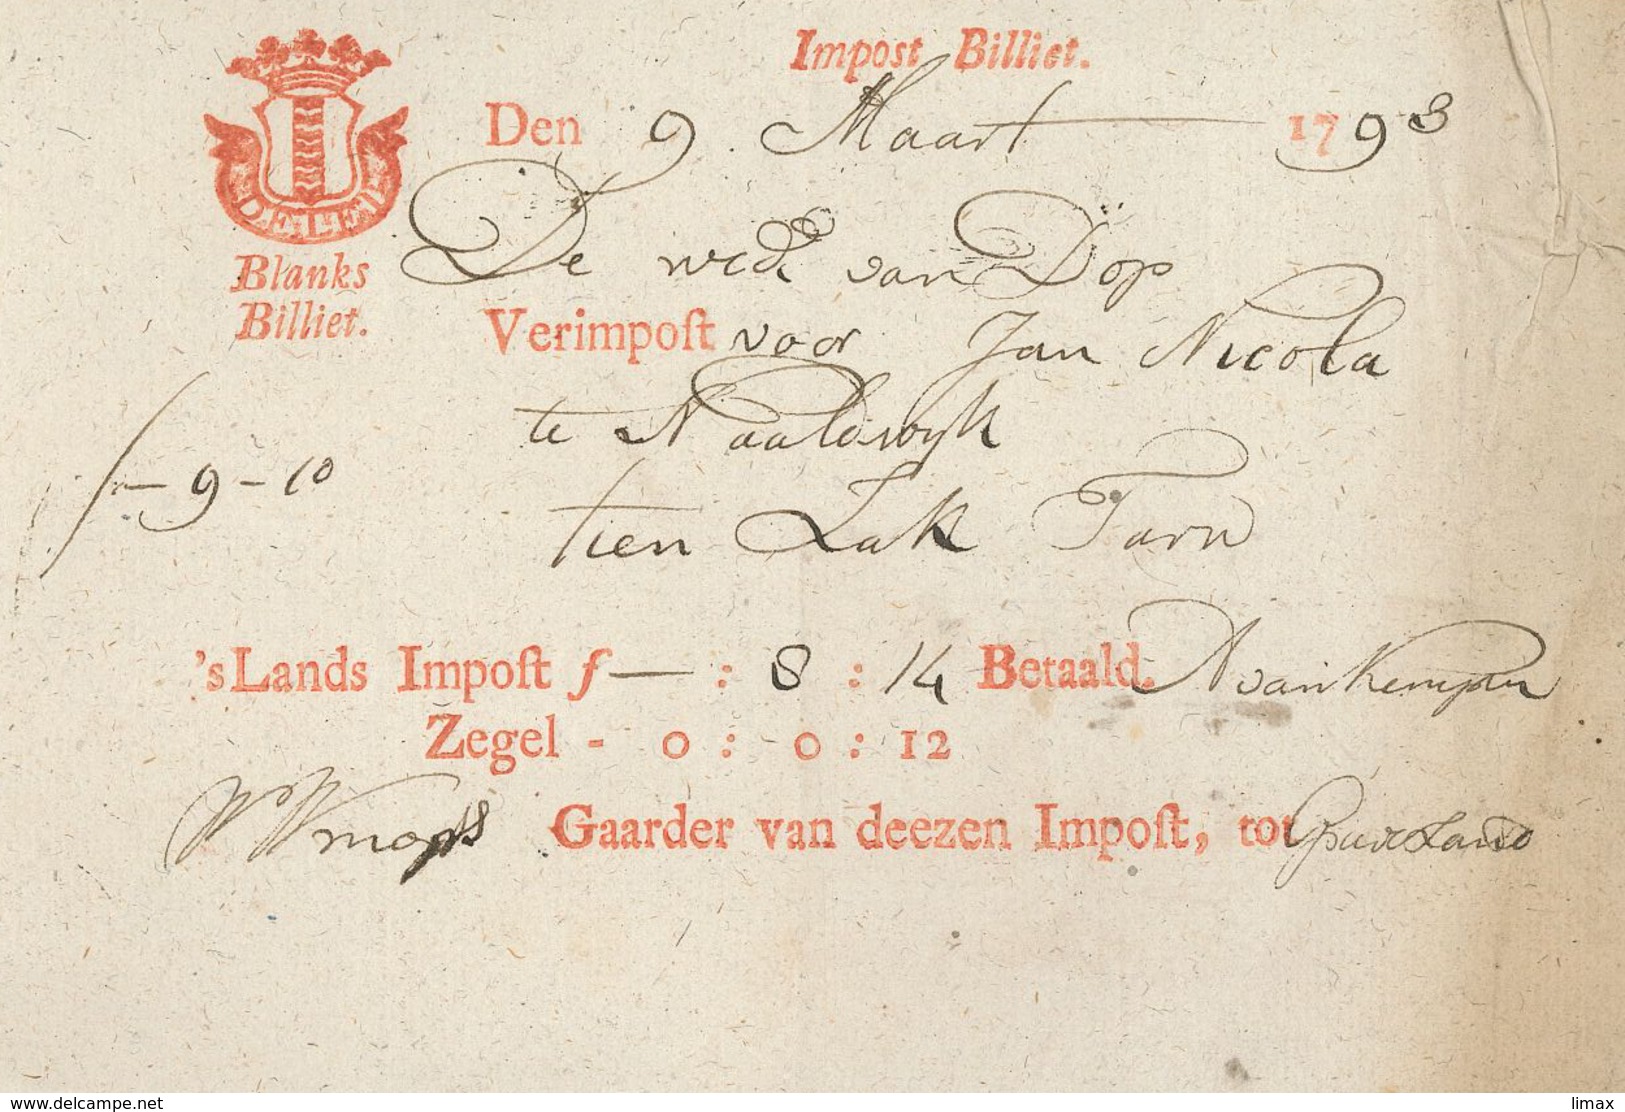 Impost Billiet.
Den 9 Maart 1798
DELFT
Blanks
Billiet.
De wed van Dop
Verimpoſt voor Jan Nicola
te Naaldwyk
ƒ— 9 – 10
tien Zak Tarw
's Lands Impoſt ƒ — : 8 : 14 Betaald. A van Kempen
Zegel - 0 : 0 : 12
Gaarder van deezen Impoſt, tot
www.delcampe.net
limax